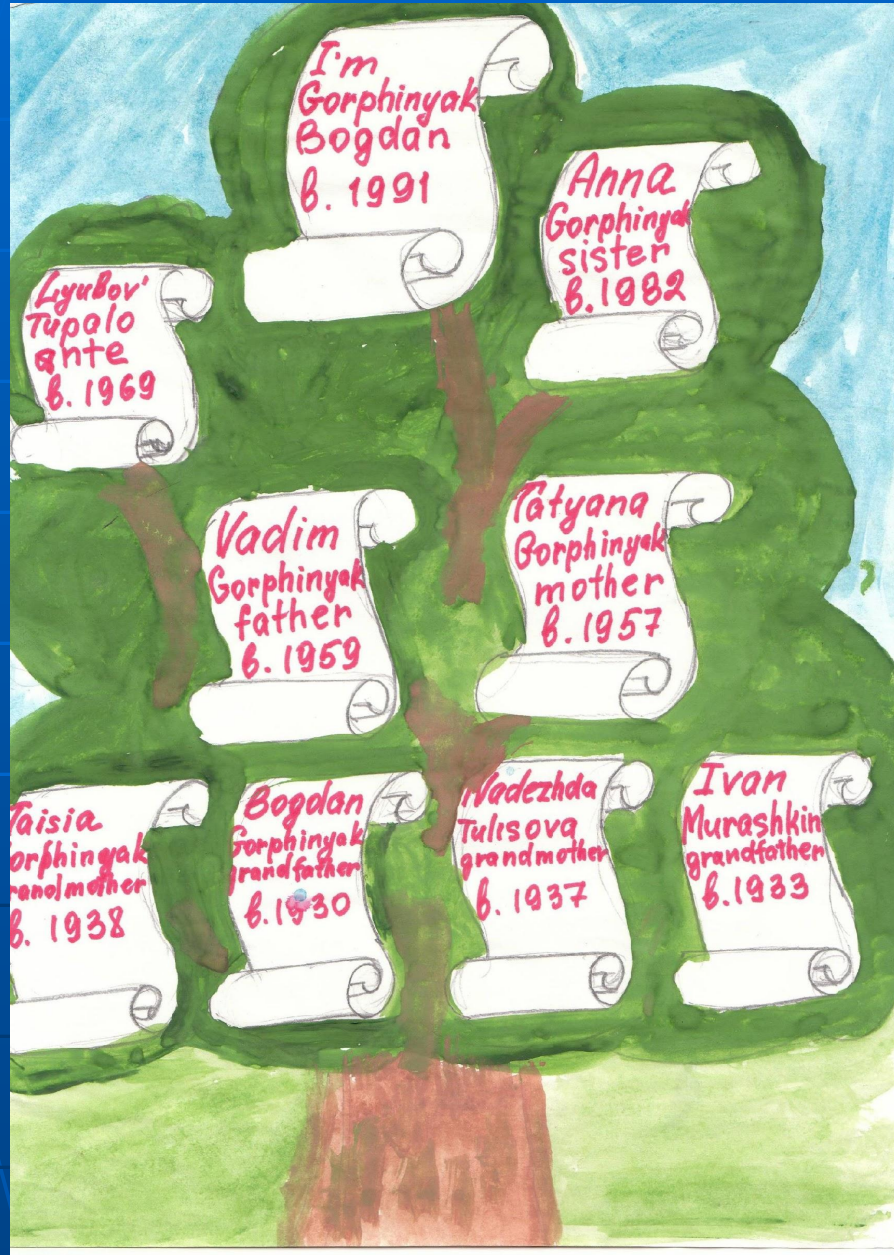 I'm
Gorphinyak
Bogdan
b. 1991
Anna
Gorphinyak
sister
b. 1982
Lyubov'
Tupalo
ante
b. 1969
Vadim
Gorphinyak
father
b. 1959
Tatyana
Gorphinyak
mother
b. 1957
Taisia
orphinyak
randmother
b. 1938
Bogdan
Gorphinyak
grandfather
b. 1930
Nadezhda
Tulisova
grandmother
b. 1937
Ivan
Murashkin
grandfather
b. 1933